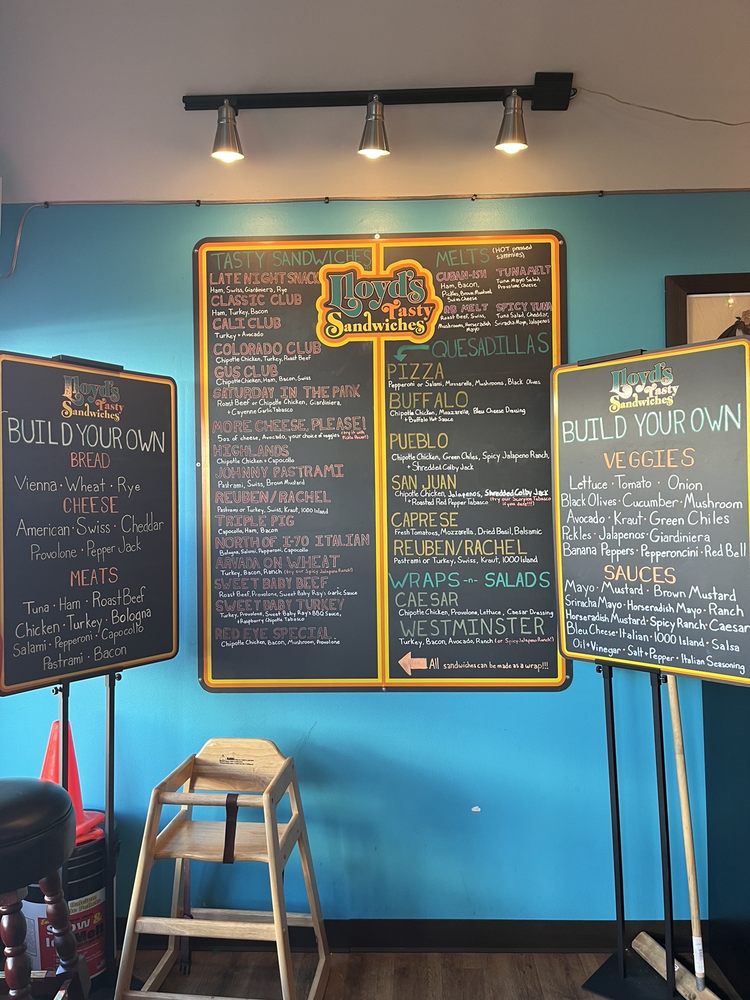 Lloyd's
Tasty
Sandwiches
BUILD YOUR OWN
BREAD
Vienna · Wheat · Rye
CHEESE
American · Swiss · Cheddar
Provolone · Pepper Jack
MEATS
Tuna · Ham · Roast Beef
Chicken · Turkey · Bologna
Salami · Pepperoni · Capocollo
Pastrami · Bacon
Lloyd's
Tasty
Sandwiches
TASTY SANDWICHES
LATE NIGHT SNACK
Ham, Swiss, Giardiniera, Rye
CLASSIC CLUB
Ham, Turkey, Bacon
CALI CLUB
Turkey + Avocado
COLORADO CLUB
Chipotle Chicken, Turkey, Roast Beef
GUS CLUB
Chipotle Chicken, Ham, Bacon, Swiss
SATURDAY IN THE PARK
Roast Beef or Chipotle Chicken, Giardiniera,
+ Cayenne Garlic Tabasco
MORE CHEESE, PLEASE!
5oz of cheese, Avocado, your choice of veggies
HIGHLANDS
Chipotle Chicken + Capocollo
JOHNNY PASTRAMI
Pastrami, Swiss, Brown Mustard
REUBEN/RACHEL
Pastrami or Turkey, Swiss, Kraut, 1000 Island
TRIPLE PIG
Capocollo, Ham, Bacon
NORTH OF I-70 ITALIAN
Bologna, Salami, Pepperoni, Capocollo
ARVADA ON WHEAT
Turkey, Bacon, Ranch (try our Spicy Jalapeno Ranch!)
SWEET BABY BEEF
Roast Beef, Provolone, Sweet Baby Ray's Garlic Sauce
SWEET BABY TURKEY
Turkey, Provolone, Sweet Baby Ray's BBQ Sauce,
+ Raspberry Chipotle Tabasco
RED EYE SPECIAL
Chipotle Chicken, Bacon, Mushroom, Provolone
MELTS (HOT pressed
sammies)
CUBAN-ISH
Ham, Bacon,
Pickles, Brown Mustard,
Swiss Cheese
TUNA MELT
Tuna Mayo Salad,
Provolone Cheese
RB MELT
Roast Beef, Swiss,
Mushrooms, Horseradish
Mayo
SPICY TUNA
Tuna Salad, Cheddar,
Sriracha Mayo, Jalapenos
QUESADILLAS
PIZZA
Pepperoni or Salami, Mozzarella, Mushrooms, Black Olives
BUFFALO
Chipotle Chicken, Mozzarella, Bleu Cheese Dressing
+ Buffalo Hot Sauce
PUEBLO
Chipotle Chicken, Green Chiles, Spicy Jalapeno Ranch,
+ Shredded Colby Jack
SAN JUAN
Chipotle Chicken, Jalapenos, Shredded Colby Jack
+ Roasted Red Pepper Tabasco (try our Scorpion Tabasco
if you dare!!!)
CAPRESE
Fresh Tomatoes, Mozzarella, Dried Basil, Balsamic
REUBEN/RACHEL
Pastrami or Turkey, Swiss, Kraut, 1000 Island
WRAPS -n- SALADS
CAESAR
Chipotle Chicken, Provolone, Lettuce, Caesar Dressing
WESTMINSTER
Turkey, Bacon, Avocado, Ranch (or Spicy Jalapeno Ranch!)
All sandwiches can be made as a wrap!!!
Lloyd's
Tasty
Sandwiches
BUILD YOUR OWN
VEGGIES
Lettuce · Tomato · Onion
Black Olives · Cucumber · Mushroom
Avocado · Kraut · Green Chiles
Pickles · Jalapenos · Giardiniera
Banana Peppers · Pepperoncini · Red Bell
SAUCES
Mayo · Mustard · Brown Mustard
Sriracha Mayo · Horseradish Mayo · Ranch
Horseradish Mustard · Spicy Ranch · Caesar
Bleu Cheese · Italian · 1000 Island · Salsa
Oil + Vinegar · Salt + Pepper · Italian Seasoning